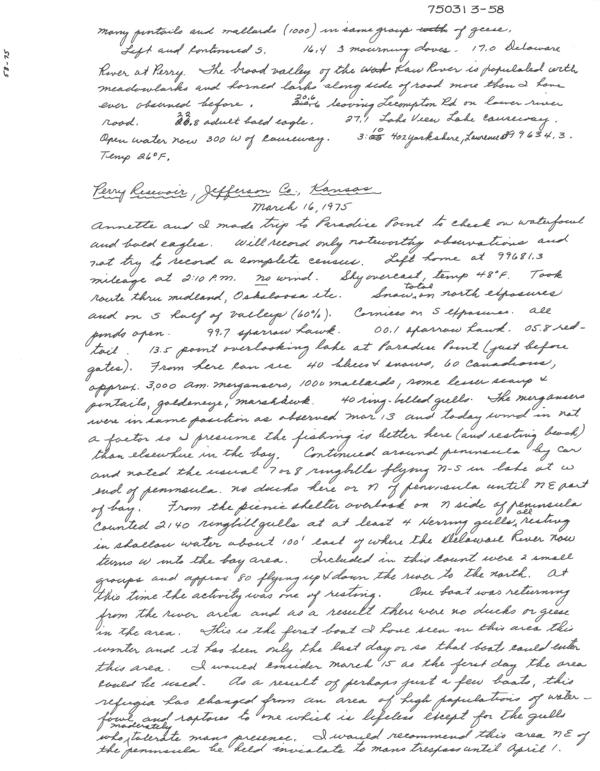 750313-58
58-75
many pintails and mallards (1000) in same group with of geese.
Left and continued S. 16.4 3 mourning doves. 17.0 Delaware
River at Perry. The broad valley of the Kaw River is populated with
meadowlarks and horned larks along side of road more than I have
ever observed before. 20.6 leaving Lecompton Rd on lower river
road. 22.8 adult bald eagle. 27.1 Lake View Lake causeway.
Open water now 300 W of causeway. 3:10 402 Yorkshire, Lawrence 99634.3.
Temp 26°F.
Perry Resevoir, Jefferson Co., Kansas
March 16, 1975
Annette and I made trip to Paradise Point to check on waterfowl
and bald eagles. Will record only noteworthy observations and
not try to record a complete census. Left home at 99681.3
mileage at 2:10 P.M. no wind. Sky overcast, temp 48°F. Took
route thru midland, Oskaloosa etc. Snow total on north exposures
and on S half of valleys (60%). Cornices on S exposures. All
ponds open. 99.7 sparrow hawk. 00.1 sparrow hawk. 05.8 red-
tail. 13.5 point overlooking lake at Paradise Point (just before
gates). From here can see 40 blues & snows, 60 Canadians,
approx. 3,000 am. mergansers, 1000 mallards, some lesser scaup &
pintails, goldeneye, marsh hawk. 40 ring-billed gulls. The mergansers
were in same position as observed mar 13 and today wind in not
a factor so I presume the fishing is better here (and resting beach)
than elsewhere in the bay. Continued around peninsula by car
and noted the usual 7 or 8 ringbills flying N-S in lake at W
end of peninsula. no ducks here or N of peninsula until NE part
of bay. From the picnic shelter overlook on N side of peninsula
counted 2140 ringbill gulls at at least 4 Herring gulls, all resting
in shallow water about 100' east of where the Delaware River now
turns W into the bay area. Included in this count were 2 small
groups and approx 80 flying up & down the river to the north. At
this time the activity was one of resting. One boat was returning
from the river area and as a result there were no ducks or geese
in the area. This is the first boat I have seen in this area this
winter and it has been only the last day or so that boats could enter
this area. I would consider march 15 as the first day the area
could be used. As a result of perhaps just a few boats, this
refugia has changed from an area of high populations of water-
fowl and raptores to one which is lifeless except for the gulls
who moderately tolerate mans presence. I would recommend this area NE of
the peninsula be held inviolate to mans trespass until April 1.